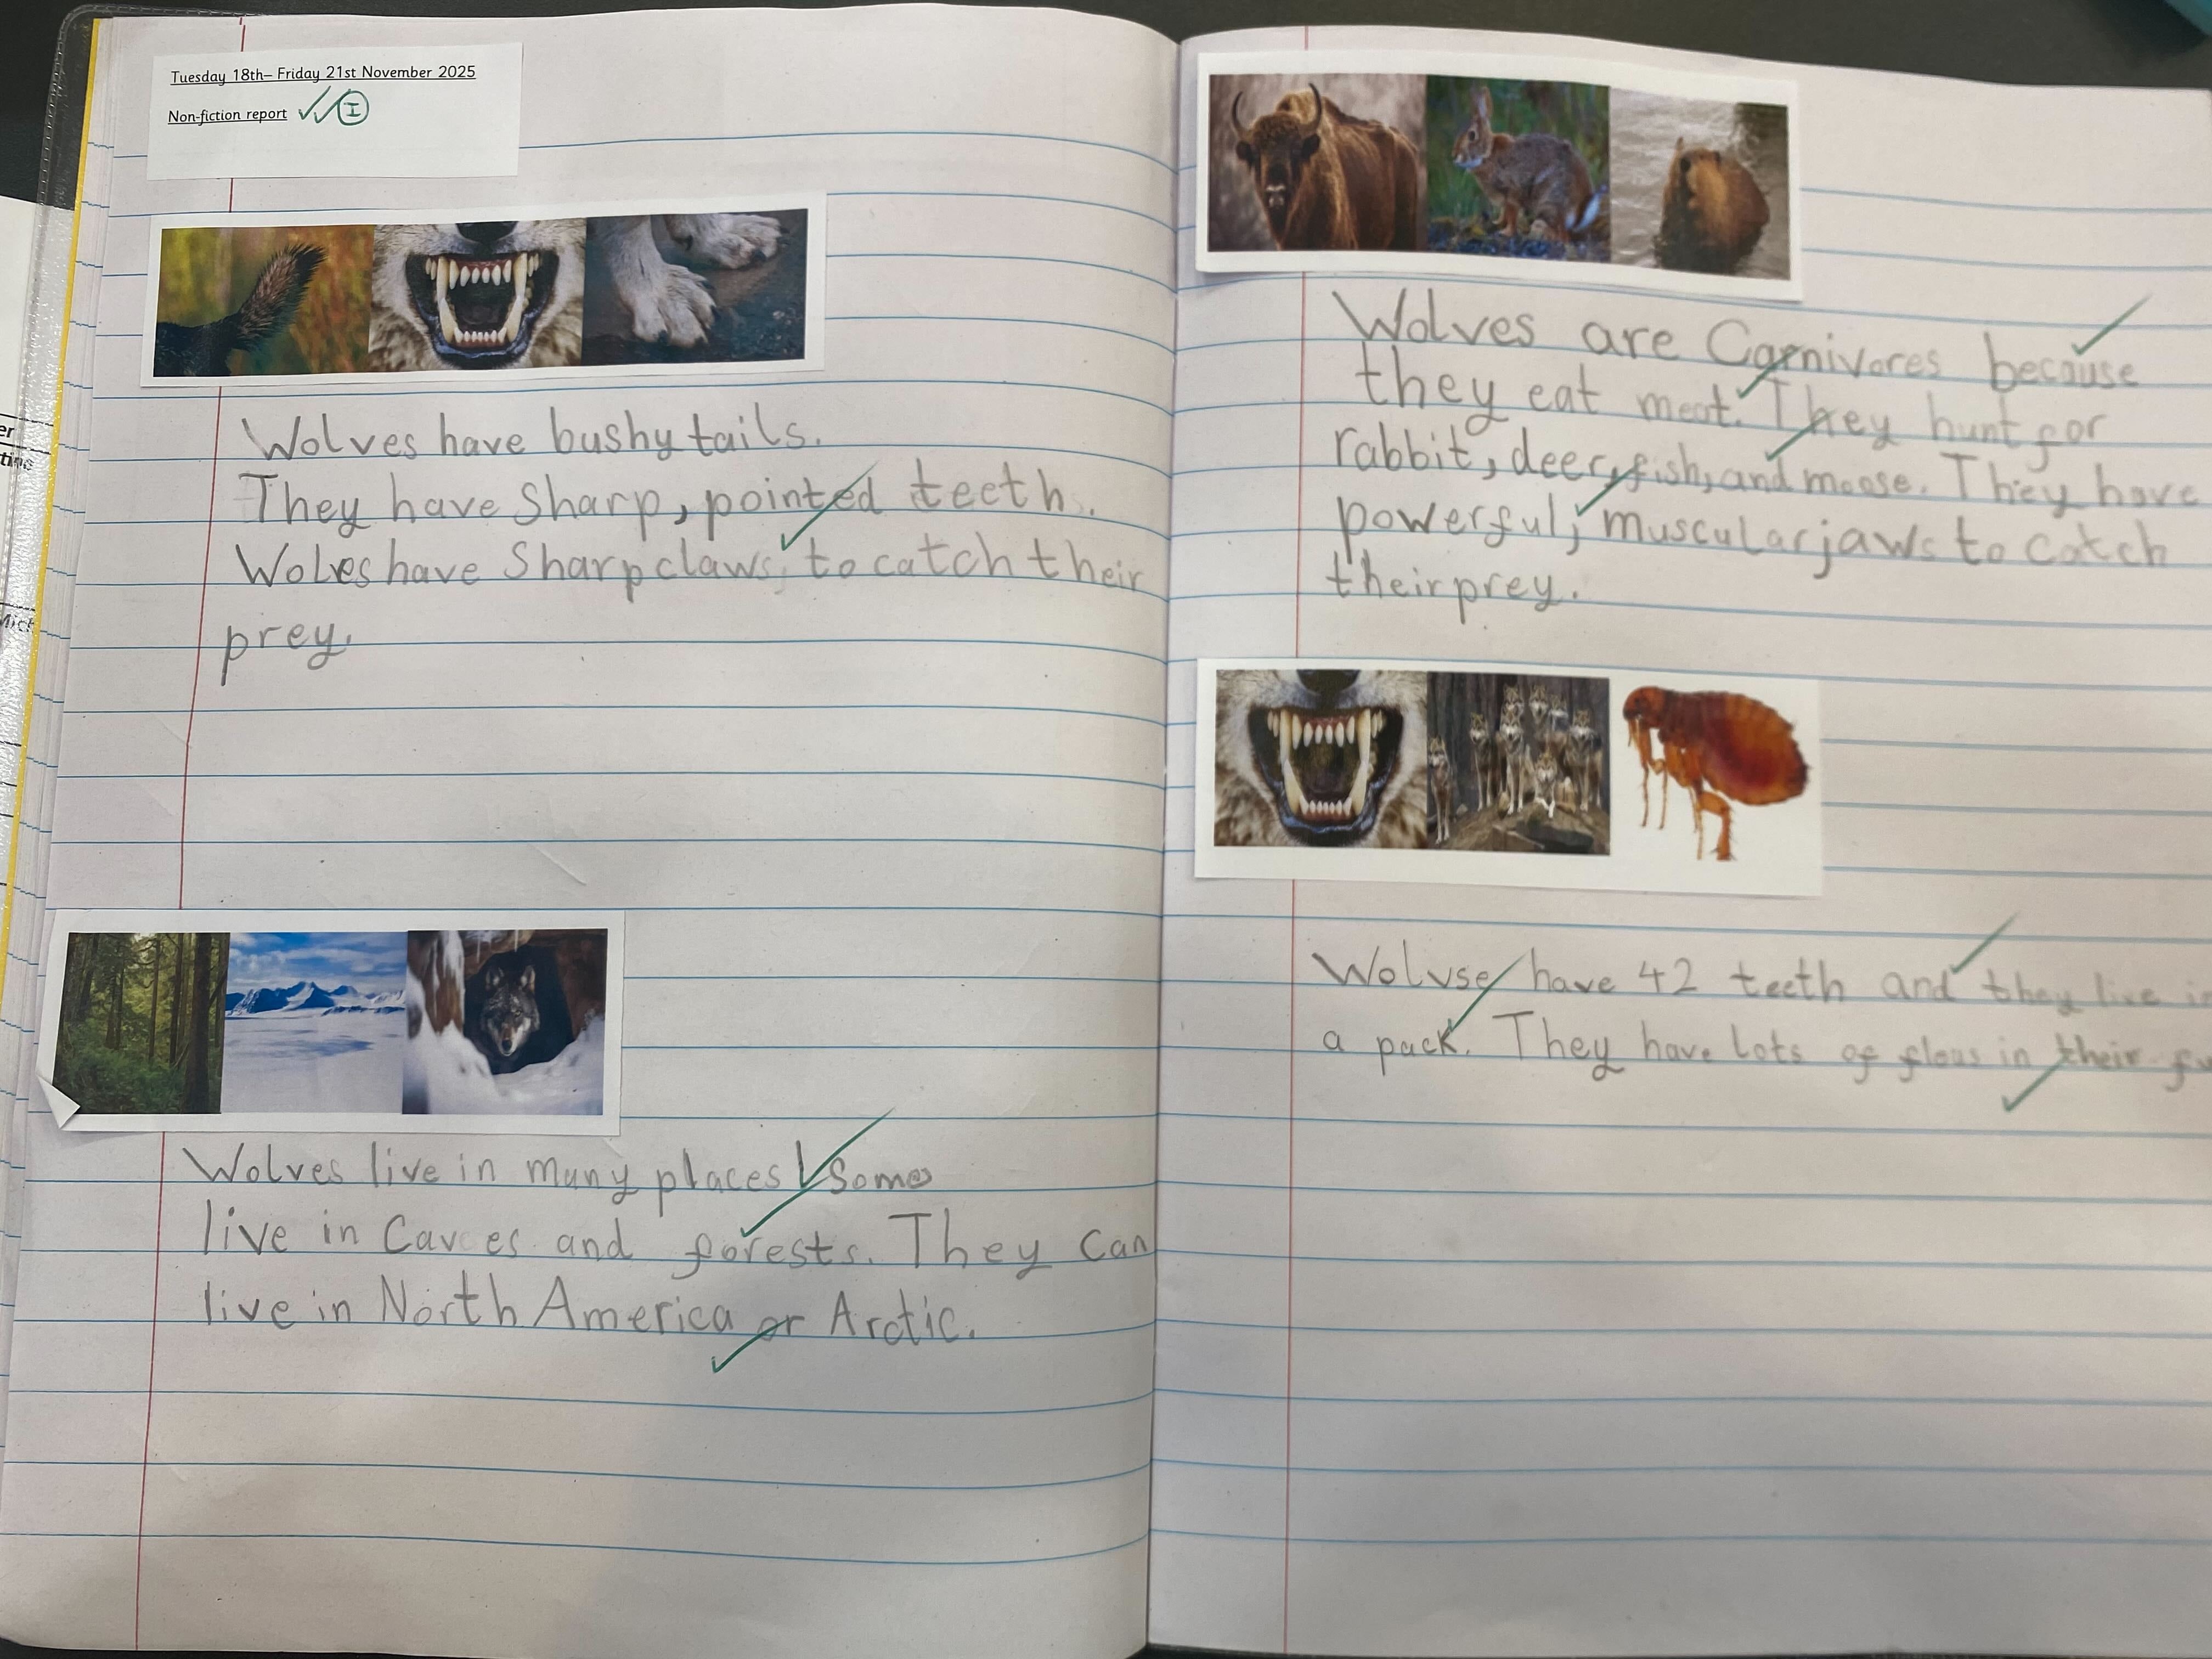 Tuesday 18th– Friday 21st November 2025
Non-fiction report I
Wolves have bushy tails.
They have Sharp, pointed teeth.
Wolves have Sharp claws, to catch their
prey.
Wolves live in many places! Some
live in Caves and forests. They Can
live in North America or Arctic.
Wolves are Carnivores because
they eat meat. They hunt for
rabbit, deer, fish, and moose. They have
powerful, muscular jaws to catch
their prey.
Wolvse have 42 teeth and they live
a pack. They have lots of fleas in their